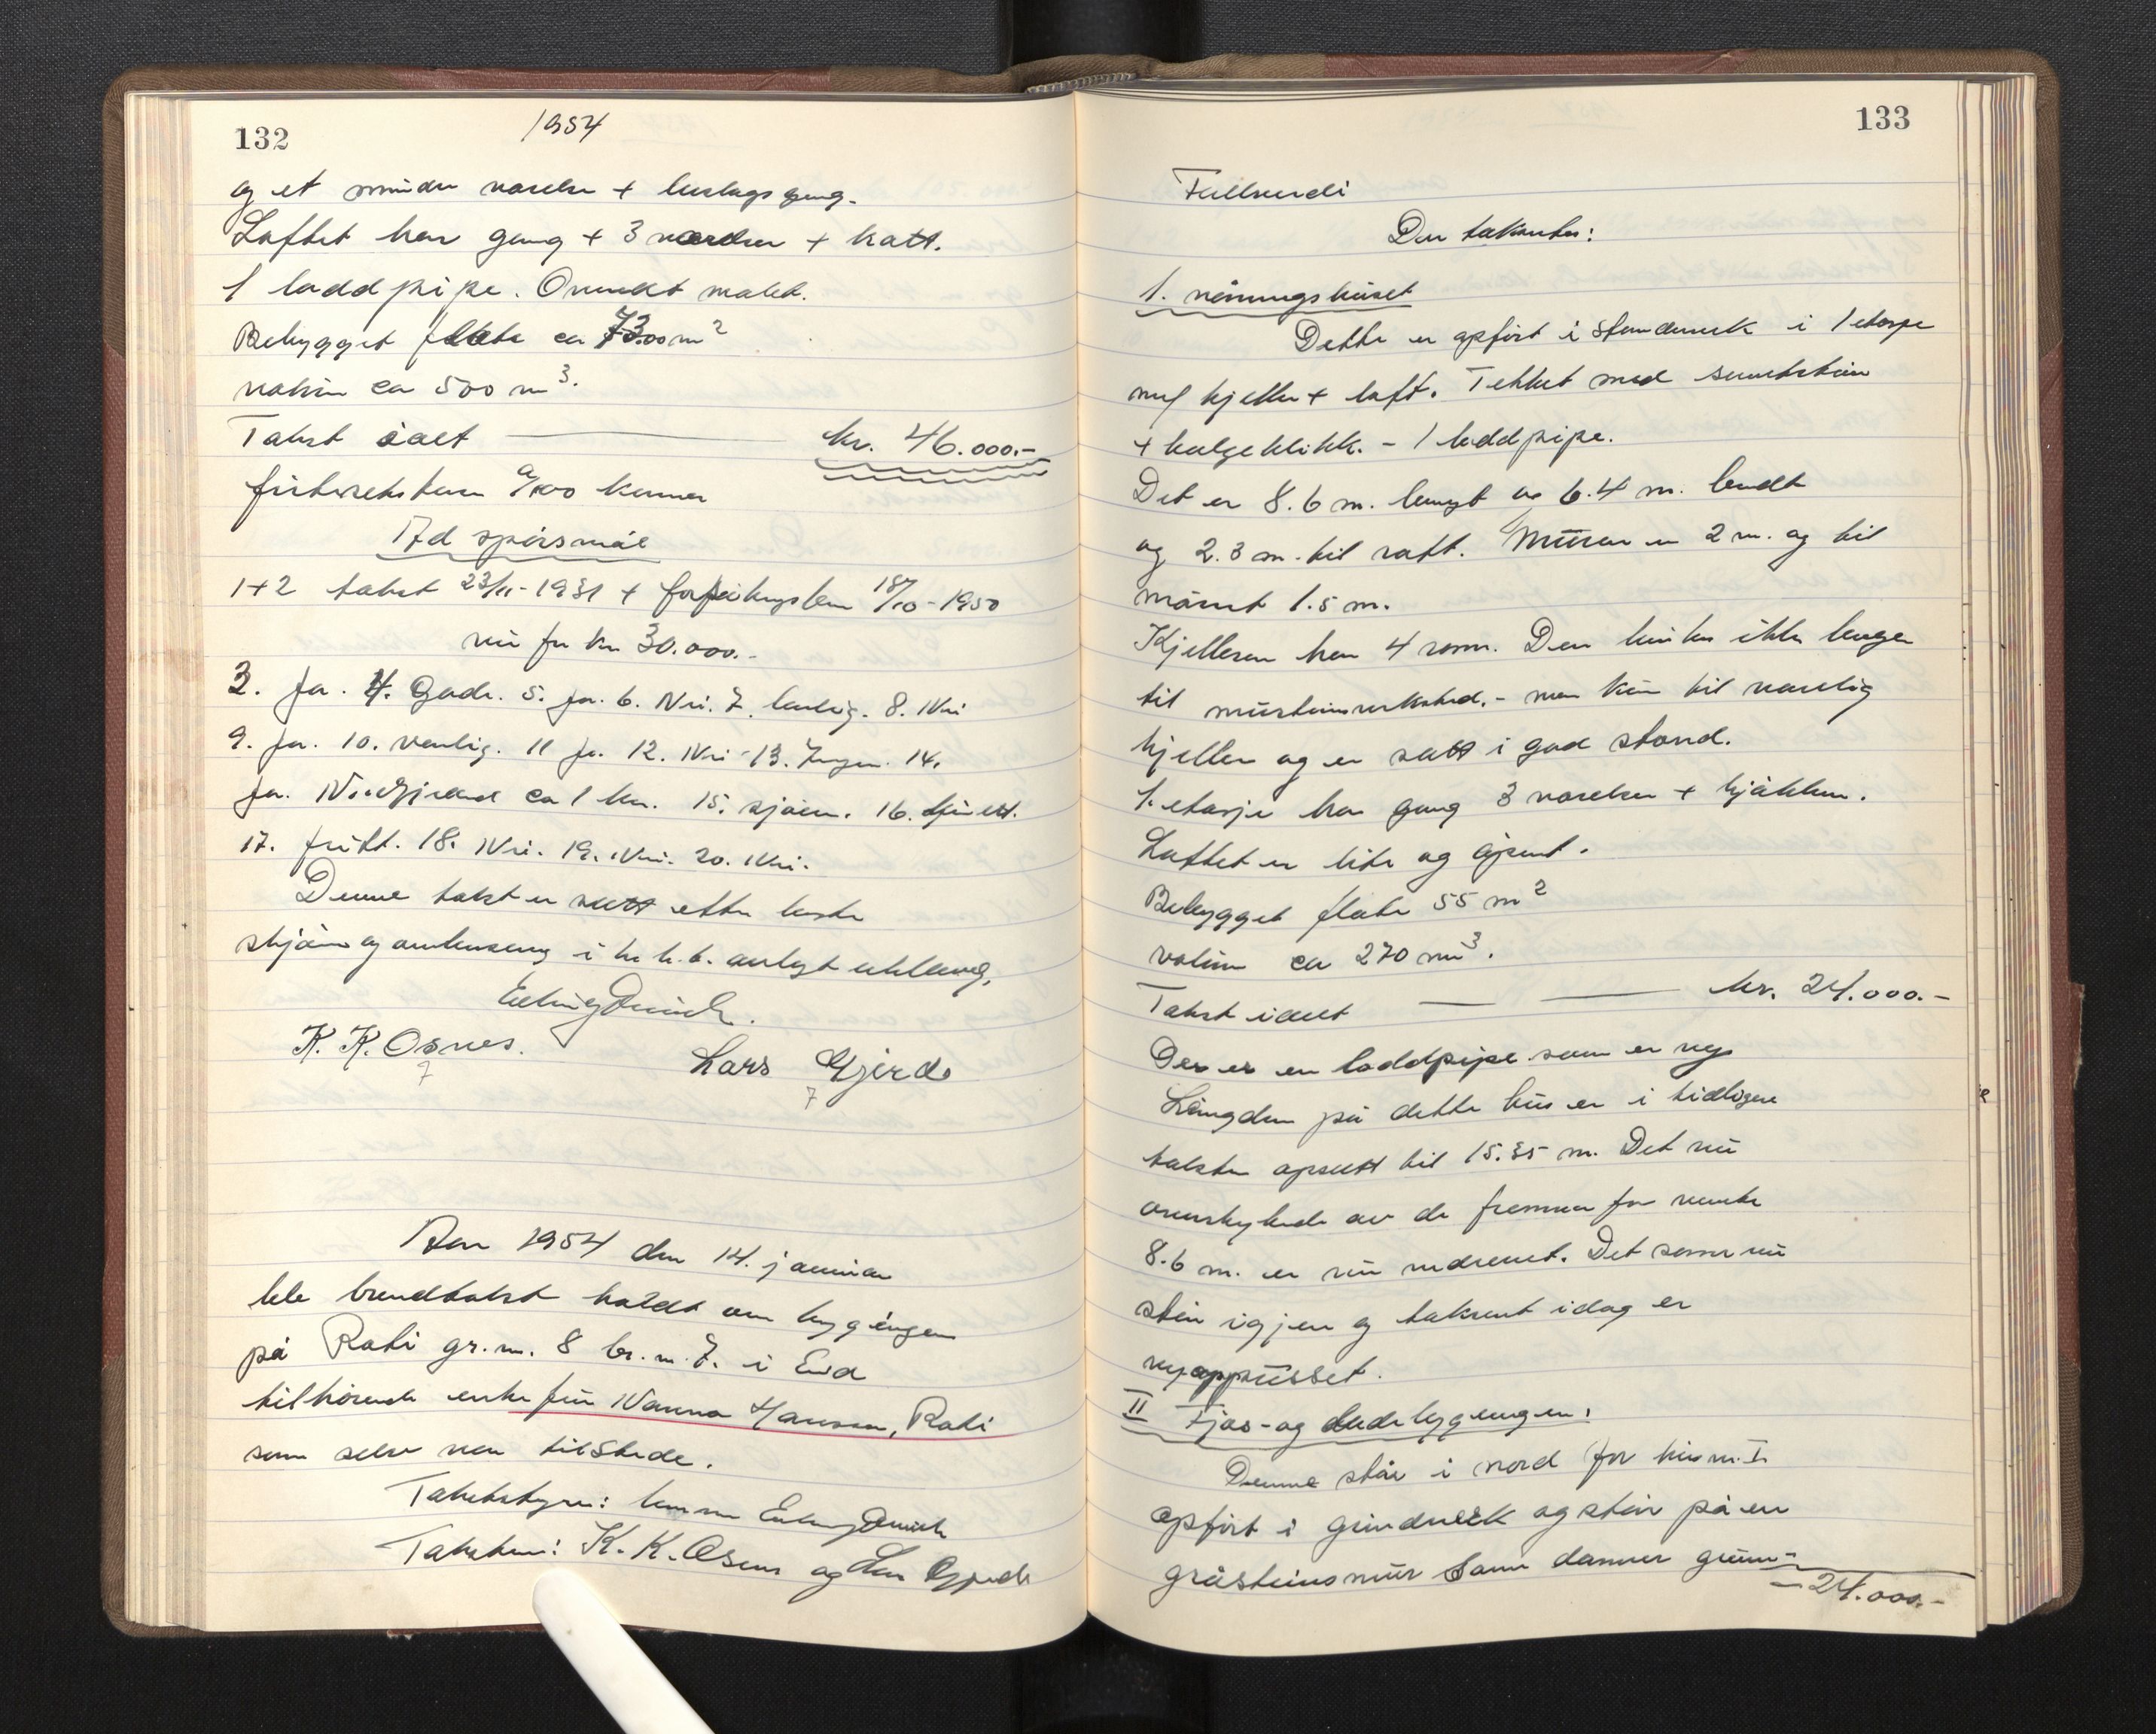 132
1954
og et mindre værelse + bislagsgang.
Loftet har gang + 3 værelser + kott.
1 loddpipe. Ovnedt malet.
Bebygget flate ca 73.00 m²
volum ca 500 m³.
Takst ialt — kr. 46.000.-
a/100 kommer
Ad spørsmål
1+2 takst 23/11-1931 + 18/10-1950
nu for kr 30.000.-
3. ja. 4. Gode. 5. ja. 6. Nei. 7. 8. Nei
9. ja. 10. vanlig. 11 ja. 12. Nei 13. Ingen. 14.
ja. ca 1 km. 15. sjøen. 16.
17. fritt. 18. Nei. 19. Nei. 20. Nei.
Denne takst er satt efter beste
skjønn og i h.h.t. avlagt
K. K. Osnes.
Lars Gjerde
Aar 1954 den 14. januar
ble brandtakst holdt over bygningen
på Roti gr. nr. 8 br. nr. 7. i Eid
tilhørende enke fru Nanna Hanssen, Roti
som selv var tilstede.
Takstbestyrer:
Takstmenn: K. K. Osnes og Lars Gjerde
133
Fullverdi
Der taksertes:
1. våningshuset
Dette er opført i stenderverk i 1 etasje
m/ kjeller + loft. Tekket med sementstein
+ bølgeblikk. - 1 loddpipe.
Det er 8.6 m. langt og 6.4 m. bredt
og 2.3 m. til raft. Muren er 2 m. og til
mønet 1.5 m.
Kjelleren har 4 rom. Den brukes ikke lenger
til - men kun til vanlig
kjeller og er satt i god stand.
1. etasje har gang 3 værelser + kjøkken.
Loftet er lite og åpent.
Bebygget flate 55 m²
volum ca 270 m³.
Takst ialt — — kr. 24.000.-
Der er en loddpipe som er ny
Længden på dette hus er i tidligere
takster opsatt til 15.35 m. Det nu
overskytende av de fremmen for nevnte
8.6 m. er nu nedrevet. Det som nu
står igjen og taksert idag er
nyoppusset.
II Fjøs- og løebygningen:
Denne står i nord for hus nr. I
opført i grindverk og står på en
gråsteinsmur som danner grunn-
- 24.000.-